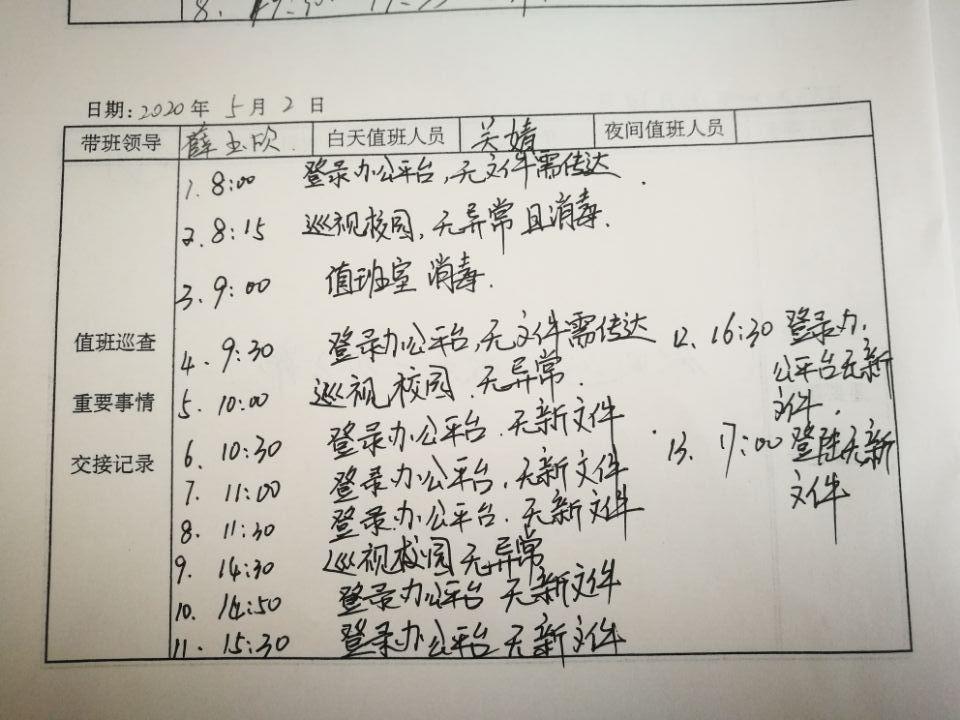 日期:2020年5月2日
带班领导 薛玉欣 白天值班人员 关婧 夜间值班人员
值班巡查
重要事情
交接记录
1. 8:00 登录办公平台,无文件需传达.
2. 8:15 巡视校园,无异常且消毒.
3. 9:00 值班室消毒.
4. 9:30 登录办公平台,无文件需传达
5. 10:00 巡视校园.无异常.
6. 10:30 登录办公平台.无新文件
7. 11:00 登录办公平台.无新文件
8. 11:30 登录办公平台.无新文件
9. 14:30 巡视校园无异常
10. 14:50 登录办公平台 无新文件
11. 15:30 登录办公平台 无新文件
12. 16:30 登录办
公平台无新
文件.
13. 17:00 登陆无新
文件